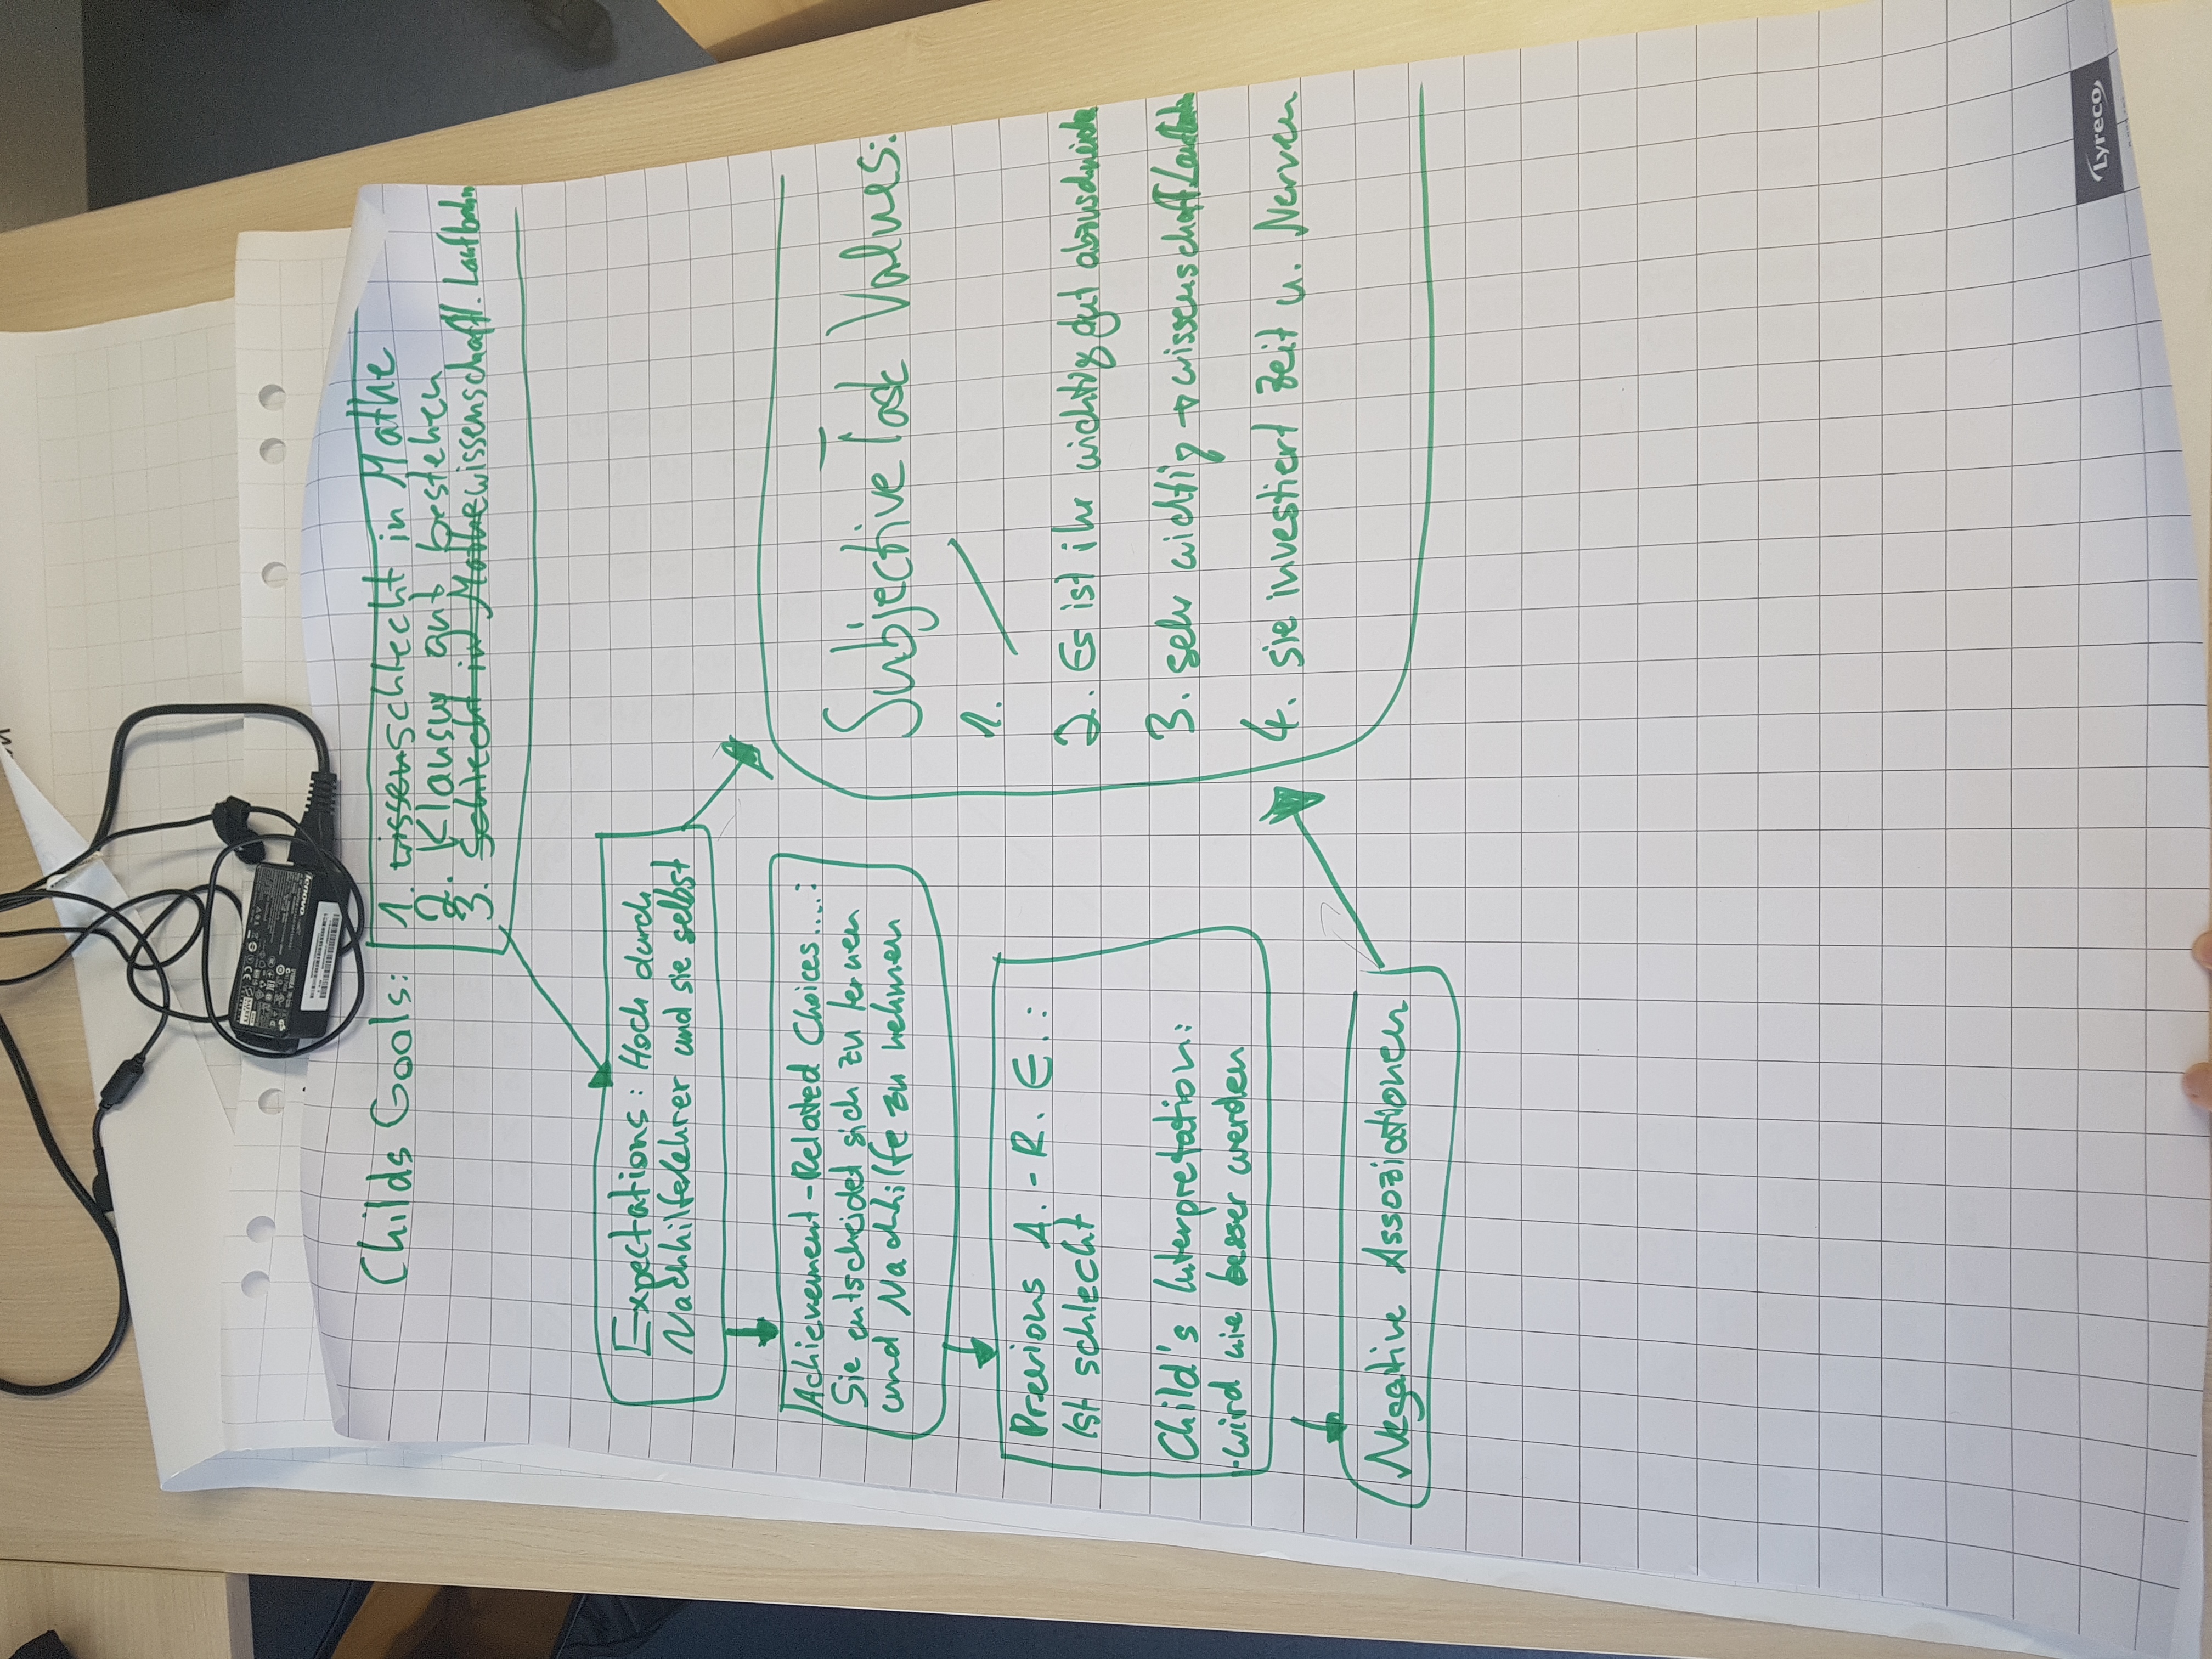 Childs Goals:
1. wissenschlecht in Mathe
2. Klausur gut bestehen
3. Schlecht in Mathe wissenschaftl. Laufbahn
Expectations: Hoch durch
Nachhilfelehrer und sie selbst
Achievement-Related Choices....:
Sie entscheidet sich zu lernen
und Nachhilfe zu nehmen
Previous A.-R. E.:
Ist schlecht
Child's Interpretation:
wird nie besser werden
Negative Assoziationen
Subjective Task Values:
1.
2. Es ist ihr wichtig gut abzuschneiden
3. sehr wichtig → wissenschaftl. Laufbahn
4. sie investiert Zeit u. Nerven
lenovo
Lyreco